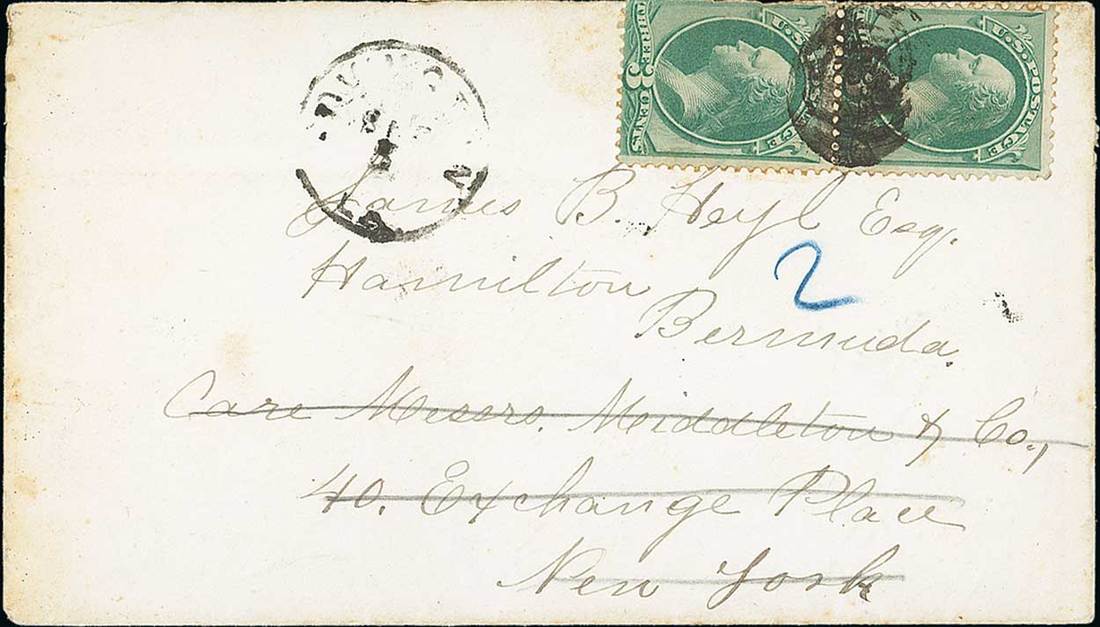 THREE 3 CENTS
U.S. POSTAGE
James B. Heyl Esq.
Hamilton
2
Bermuda.
Care Messrs. Middleton & Co.,
40. Exchange Place
New York